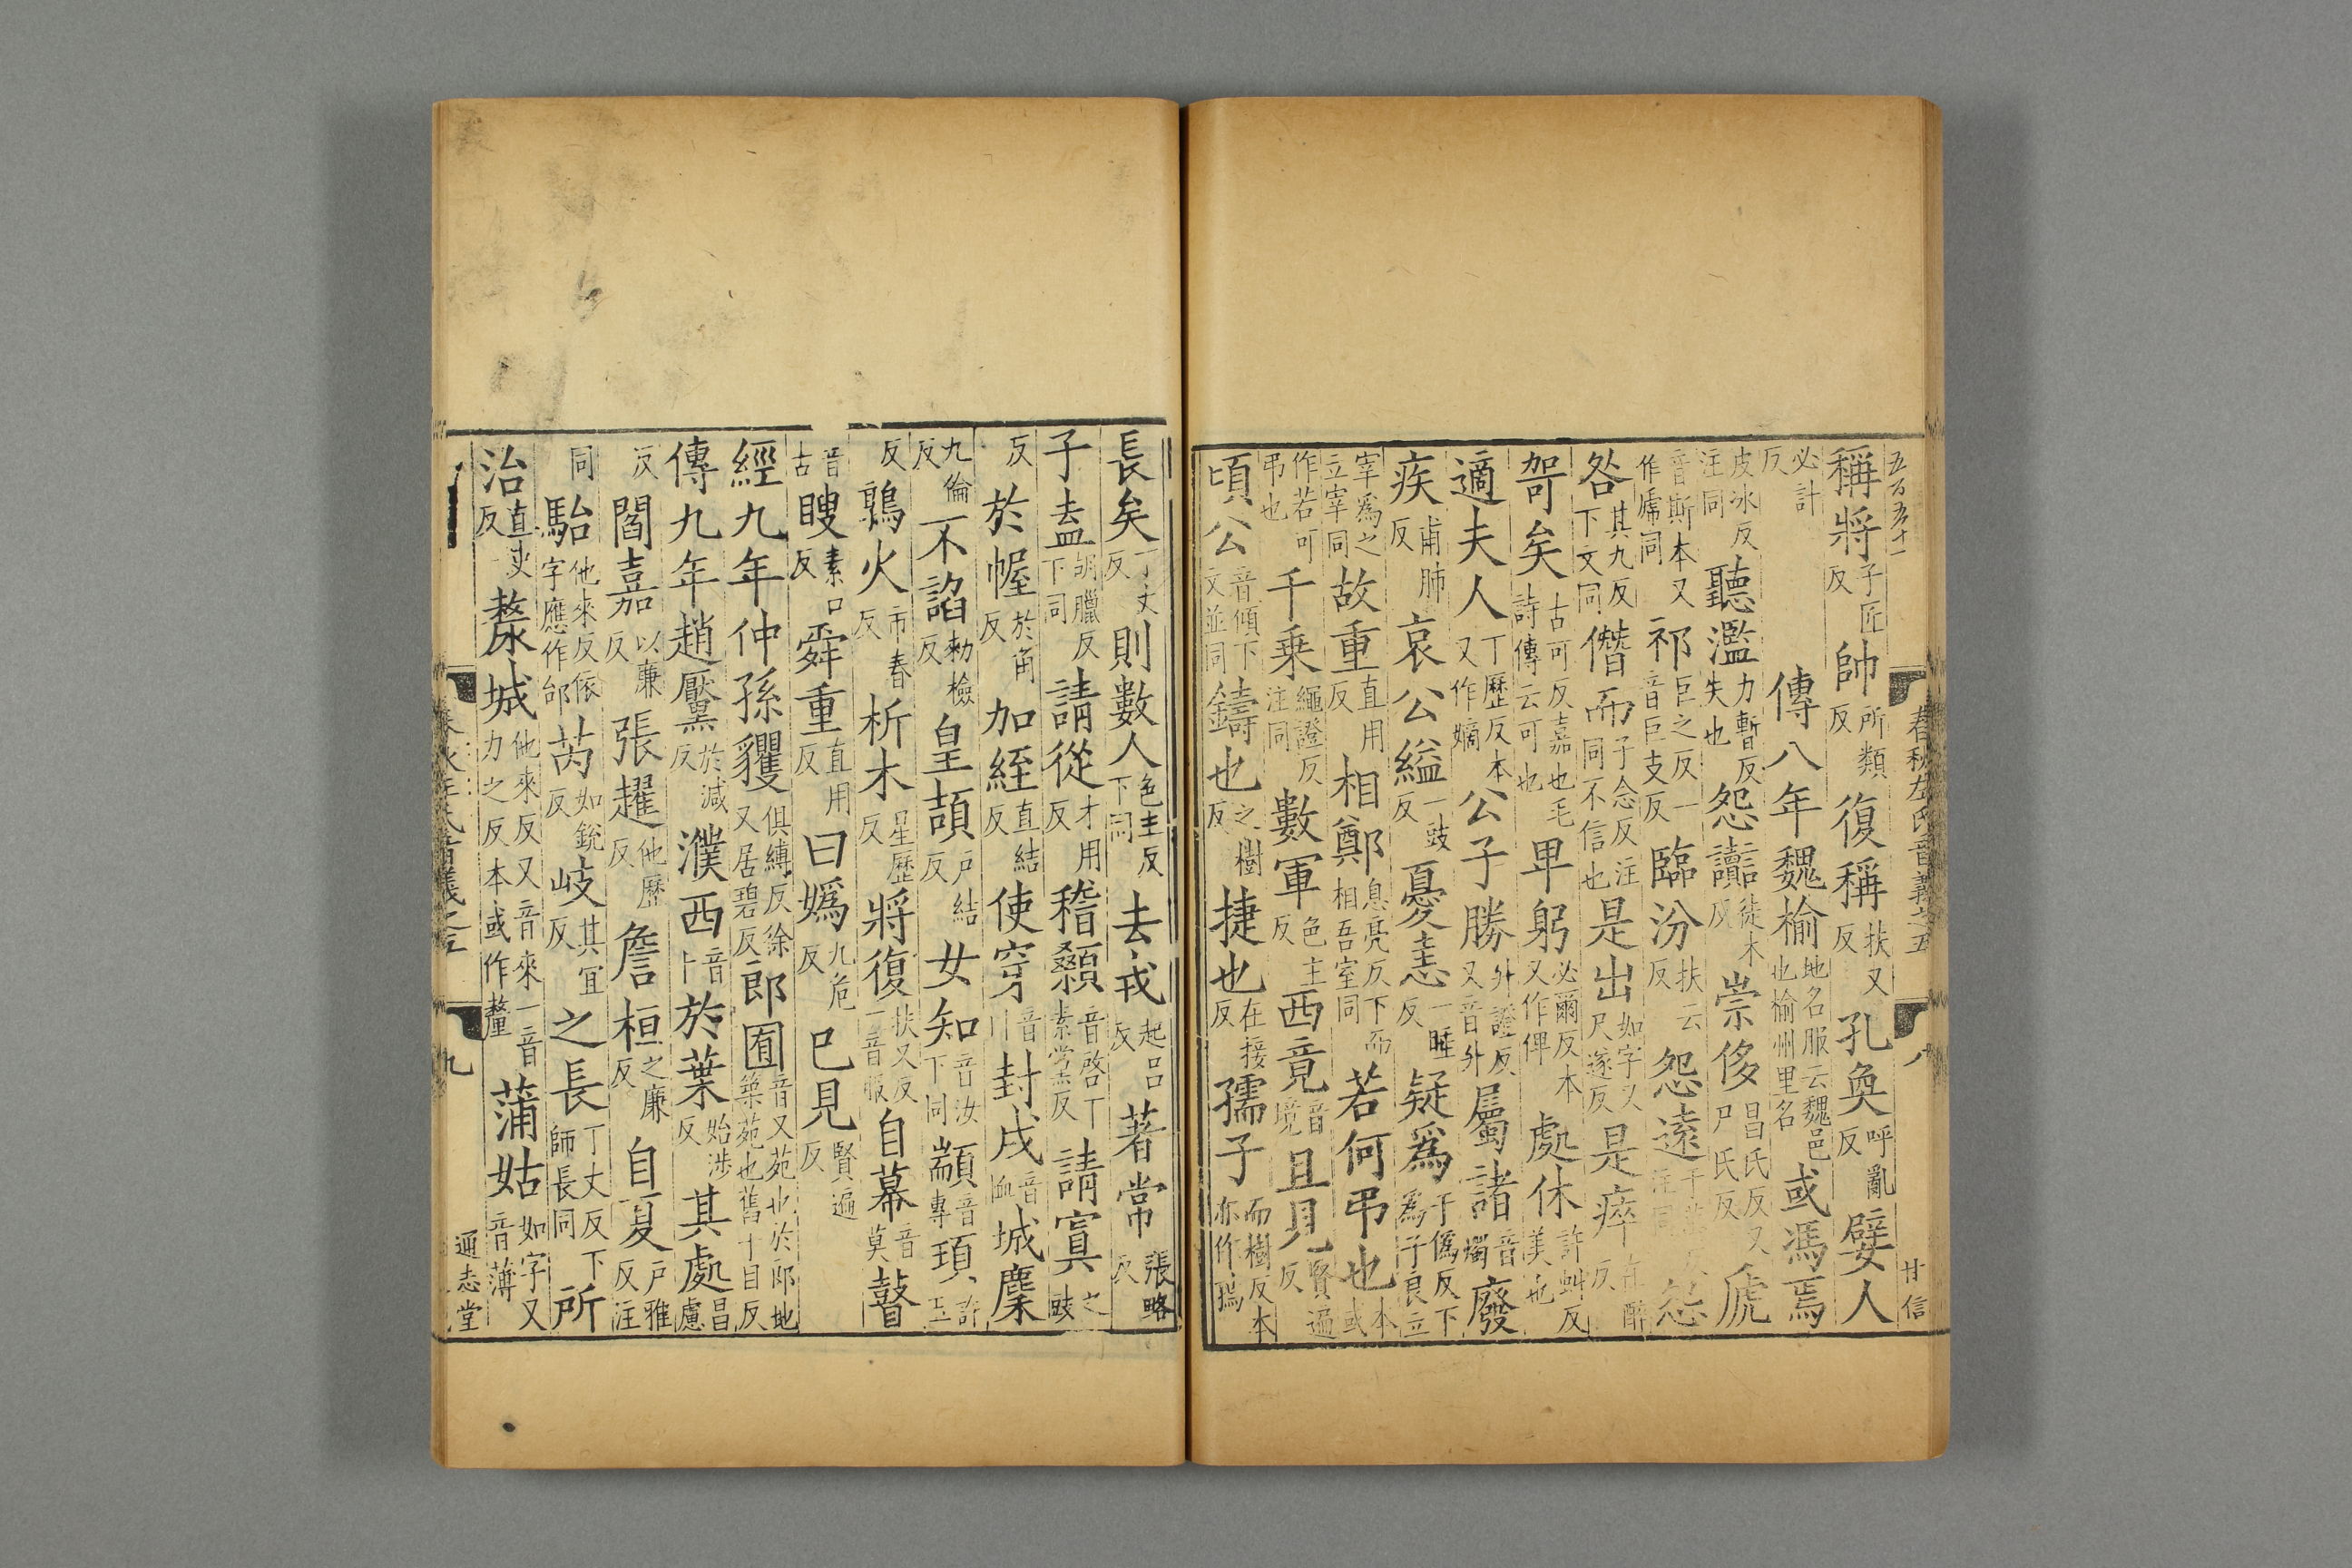 五百五十一
春秋左氏音義之五 八 甘信
稱將子匠反帥所類反復稱扶又反孔奐呼亂反嬖人
必計反傳八年魏榆地名服云魏邑也榆州里名或馮焉
皮冰反注同聽濫力暫反失也怨讟徒木反崇侈昌氏反又尸氏反虒
音斯本又作虒同祁巨之反一音巨支反臨汾扶云反怨遠注同怨
咎其九反下文同僭而子念反注同不信也是出如字又尺遂反是瘁在醉反
哿矣古可反嘉也毛詩傳云可也卑躬必爾反本又作俾處休許虬反美也
適夫人丁歷反本又作嫡公子勝升證反又音升屬諸音燭廢
疾甫肺反哀公縊一豉反憂恚一睡反疑爲于僞反下爲子良立
宰爲之立宰同故重直用反相鄭息亮反下而相吾室同若何弔也本或
作若可弔也千乗繩證反注同數軍色主反西竟音境且見賢遍反
頃公音傾下文並同鑄也之樹反捷也在接反孺子而樹反本亦作𡦗
長矣丁丈反則數人色主反下同去戎起呂反著常張略反
子盍胡臘反下同請從才用反稽顙音啓下素黨反請寘之豉
反於幄於角反加絰直結反使穿音川封戌音恤城麇
九倫反不諂勑檢反皇頡戶結反女知音汝下同顓音專頊許玉
反鶉火市春反析木星歷反將復扶又反一音服自幕音莫瞽
音古瞍素口反舜重直用反曰嬀九危反已見賢遍反
經九年仲孫貜俱縛反徐又居碧反郎囿音又苑也於郎地築苑也舊于目反
傳九年趙黶於減反濮西音卜於葉始涉反其處昌慮
反閻嘉以廉反張趯他歷反詹桓之廉反自夏戶雅反注
同駘他來反依字應作邰芮如銳反岐其宜反之長丁丈反下師長同所
治直吏反斄城他來反又音來一音力之反本或作釐蒲姑如字又音薄
九 通志堂